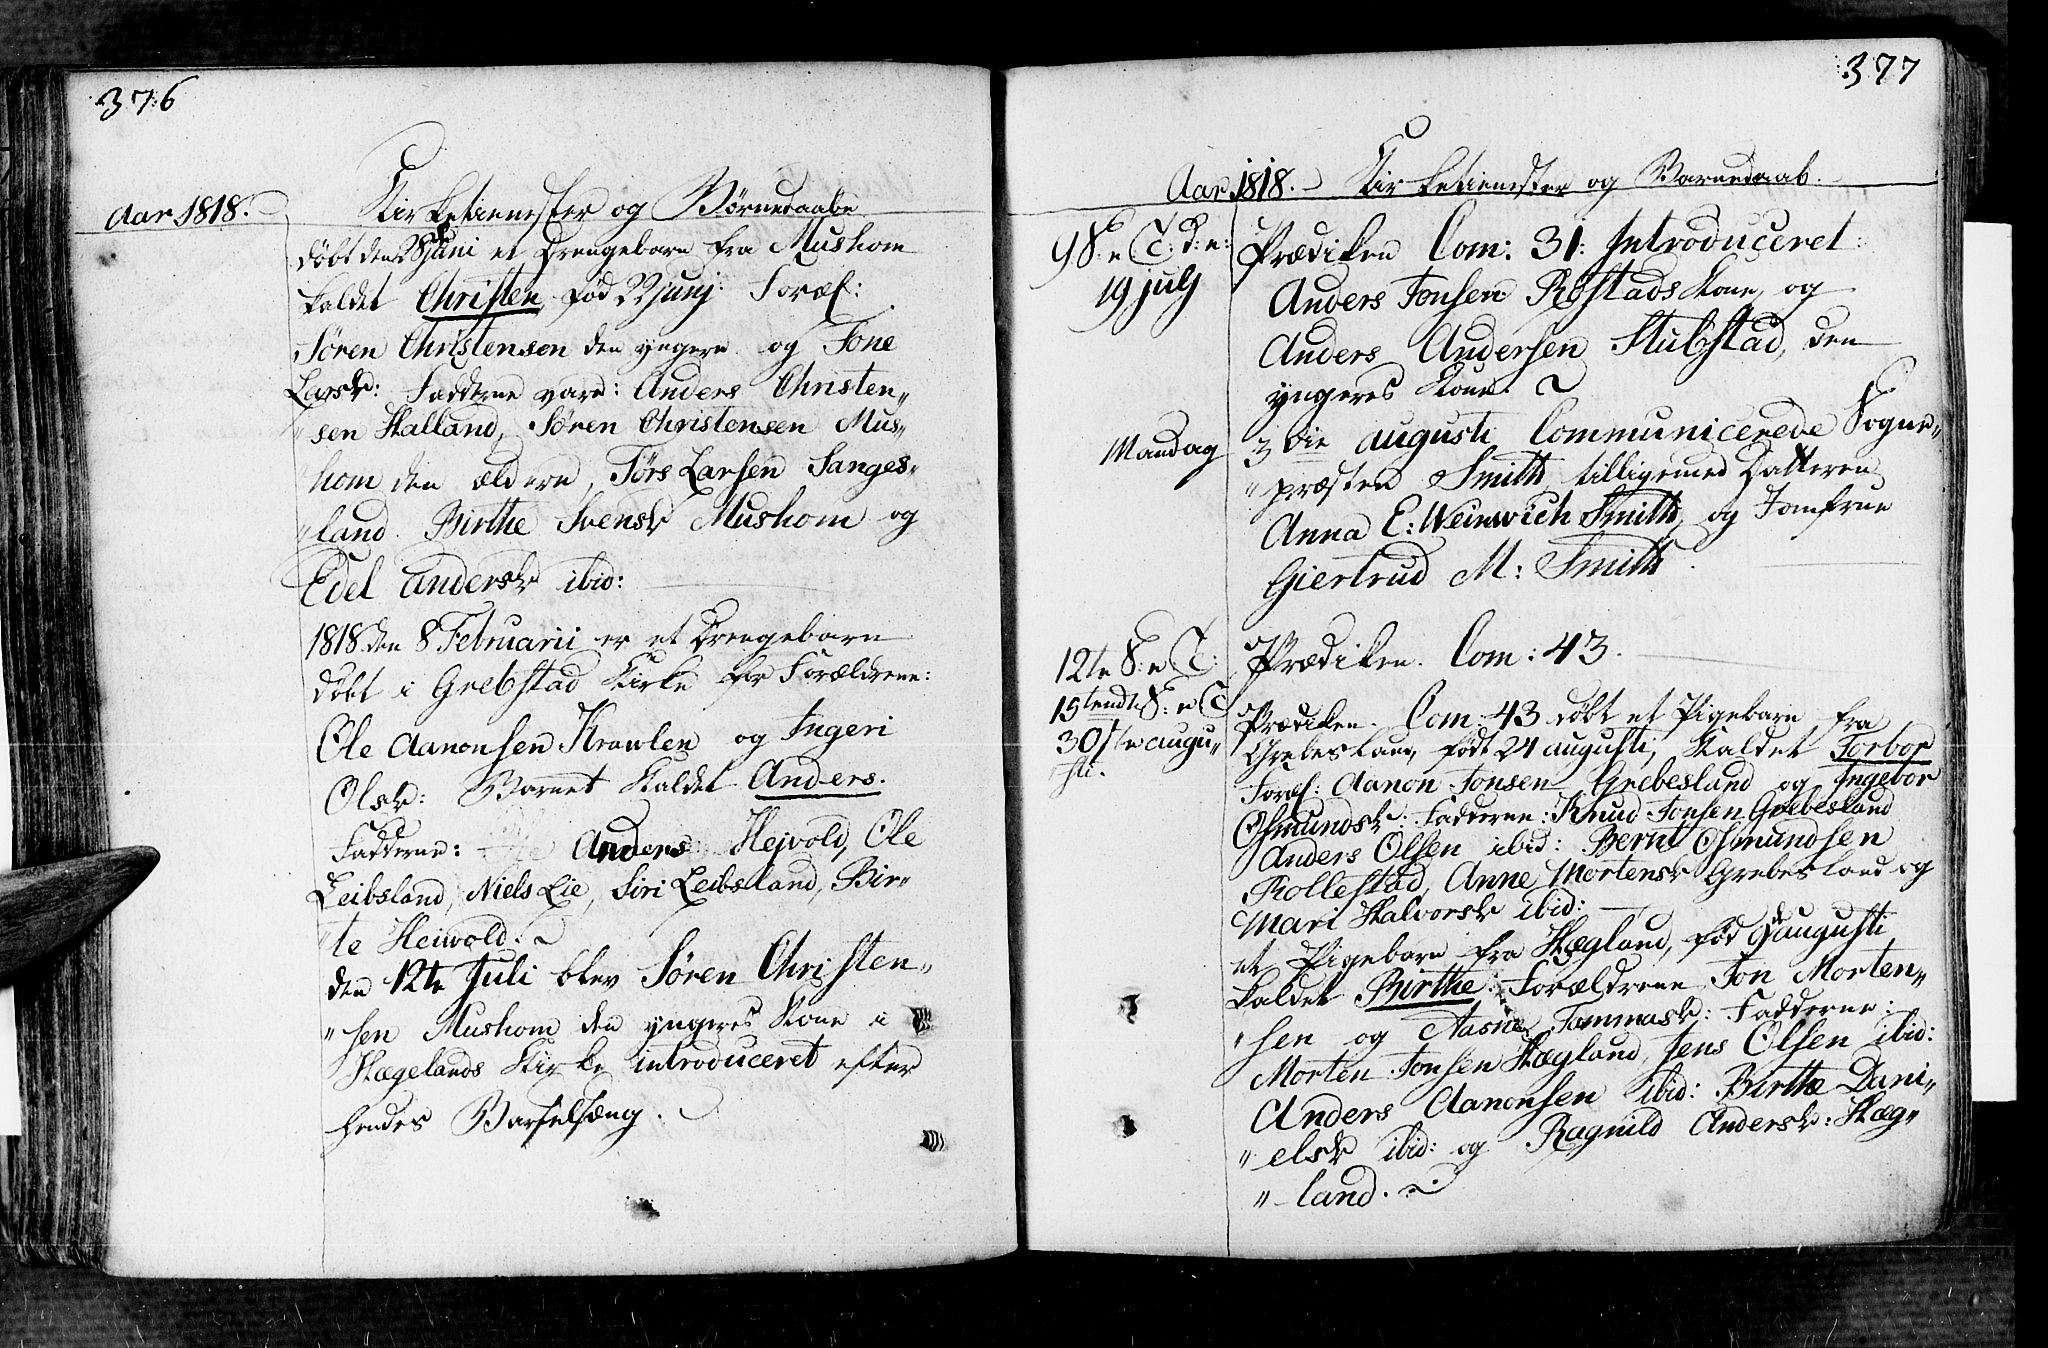 376
Aar 1818. Kirketienester og Börnedaabe
döbt den 28 Juni et Drengebarn fra Mushom
kaldet Christen, föd 22 junj: Foræl:
Sören Christensen den yngere og Tone
Larsdr: Fadderne vare: Anders Christen„
„sen Kalland, Sören Christensen Mus„
hom den ældere, Törs Larsen Sanges„
„land. Birthe Svensdr Mushom og
Edel Andersdr ibid:
1818 den 8 Februarii er et Drengebarn
döbt i Grebstad Kirke for Forældrene:
Ole Aanonsen Krawlen og Ingeri
Olsdr: Barnet Kaldet Anders.
Fadderne: Anders Hejvold, Ole
Leibsland, Niels Lie, Siri Leibsland, Bir„
„te Heiwold.
den 12te Juli blev Sören Christen„
„sen Mushom den yngeres Kone i
Hægelands Kirke introduceret efter
hendes Barselsæng.
377
Aar 1818. Kirketienester og Barnedaab.
9 S: e T: d: e: Prædiken Com: 31: Introduceret:
19 julj Anders Jonsen Röstads Kone, og
Anders Andersen Stubstad, den
yngeres Kone.
Mandag 3die augusti Communicerede Sogne„
„præsten Smith tilligemed Datteren
Anna E: Weinwich Smith, og Jomfrue
Giertrud M: Smith.
12te S: e T: Prædiken. Com: 43.
15tende S: e T Prædiken. Com: 43 döbt et Pigebarn fra
30te augu„ Grebesland, födt 24 augusti, Kaldet Torbor
„sti. Foræl: Aanon Jonsen Grebesland og Ingebor
Osmundsdr: Fadderne: Knud Jonsen Grebesland
Anders Olsen ibid: Bernt Osmundsen
Rollestad, Anne Mortensdr Grebesland og
Mari Halvorsdr ibid:
et Pigebarn fra Hægland, föd 9de augusti
kaldet Birthe: Forældrene Jon Morten„
„sen og Aasne Tommasdr: Fadderne:
Morten Jonsen Hægland, Jens Olsen ibid:
Anders Aanonsen ibid: Birthe Dani„
„elsdr ibid: og Ragnild Andersdr: Hæg„
„land.